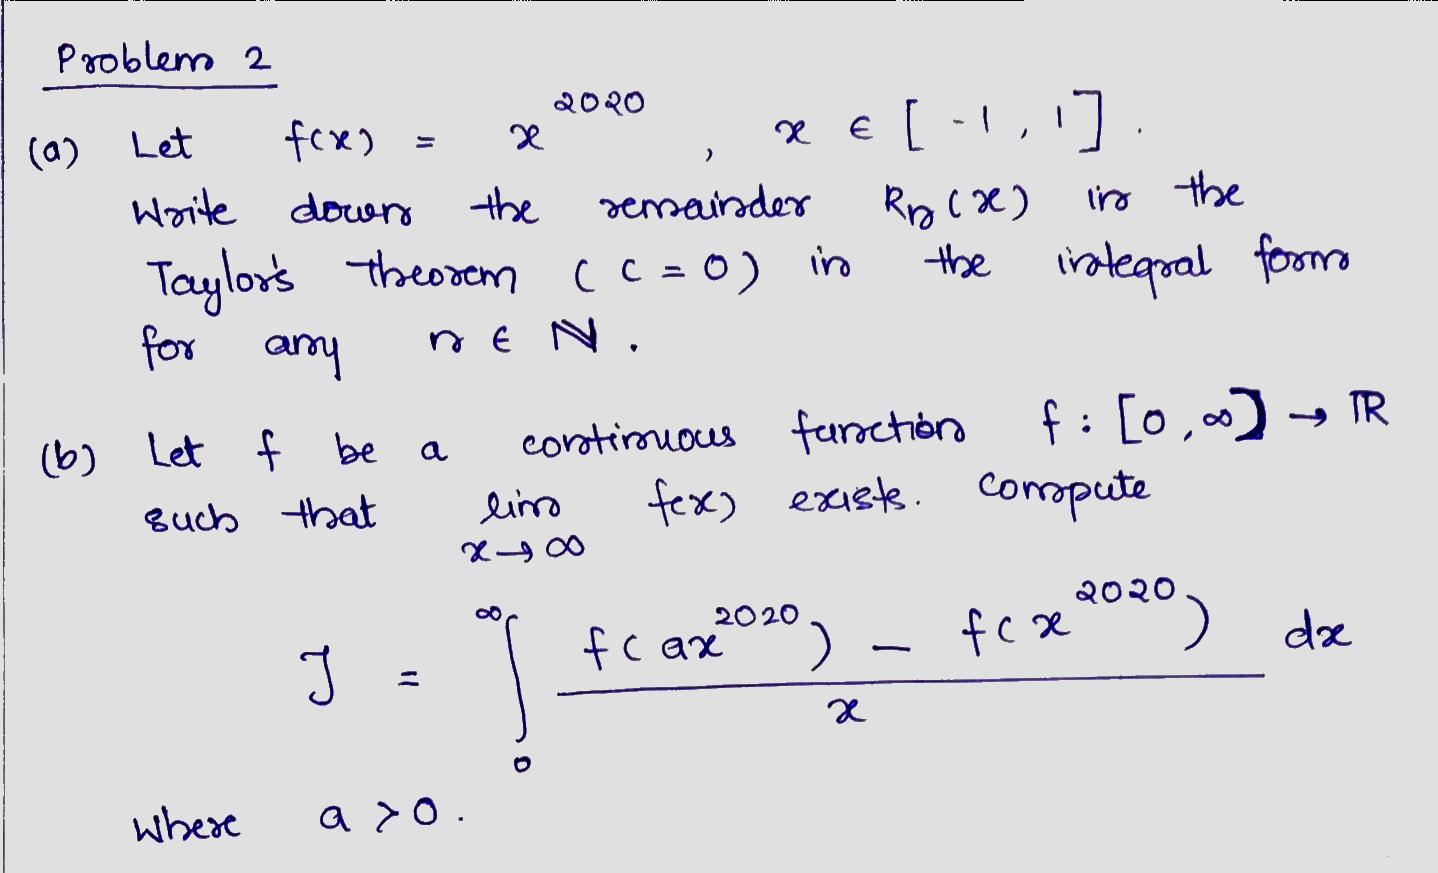 Problem 2
(a) Let f(x) = x^2020 , x ∈ [-1, 1].
Write down the remainder Rn(x) in the
Taylor's theorem (c=0) in the integral form
for any n ∈ ℕ.
(b) Let f be a continuous function f: [0,∞] → ℝ
such that lim x→∞ f(x) exists. Compute
J = ∫_0^∞ (f(ax^2020) - f(x^2020)) / x dx
where a > 0.